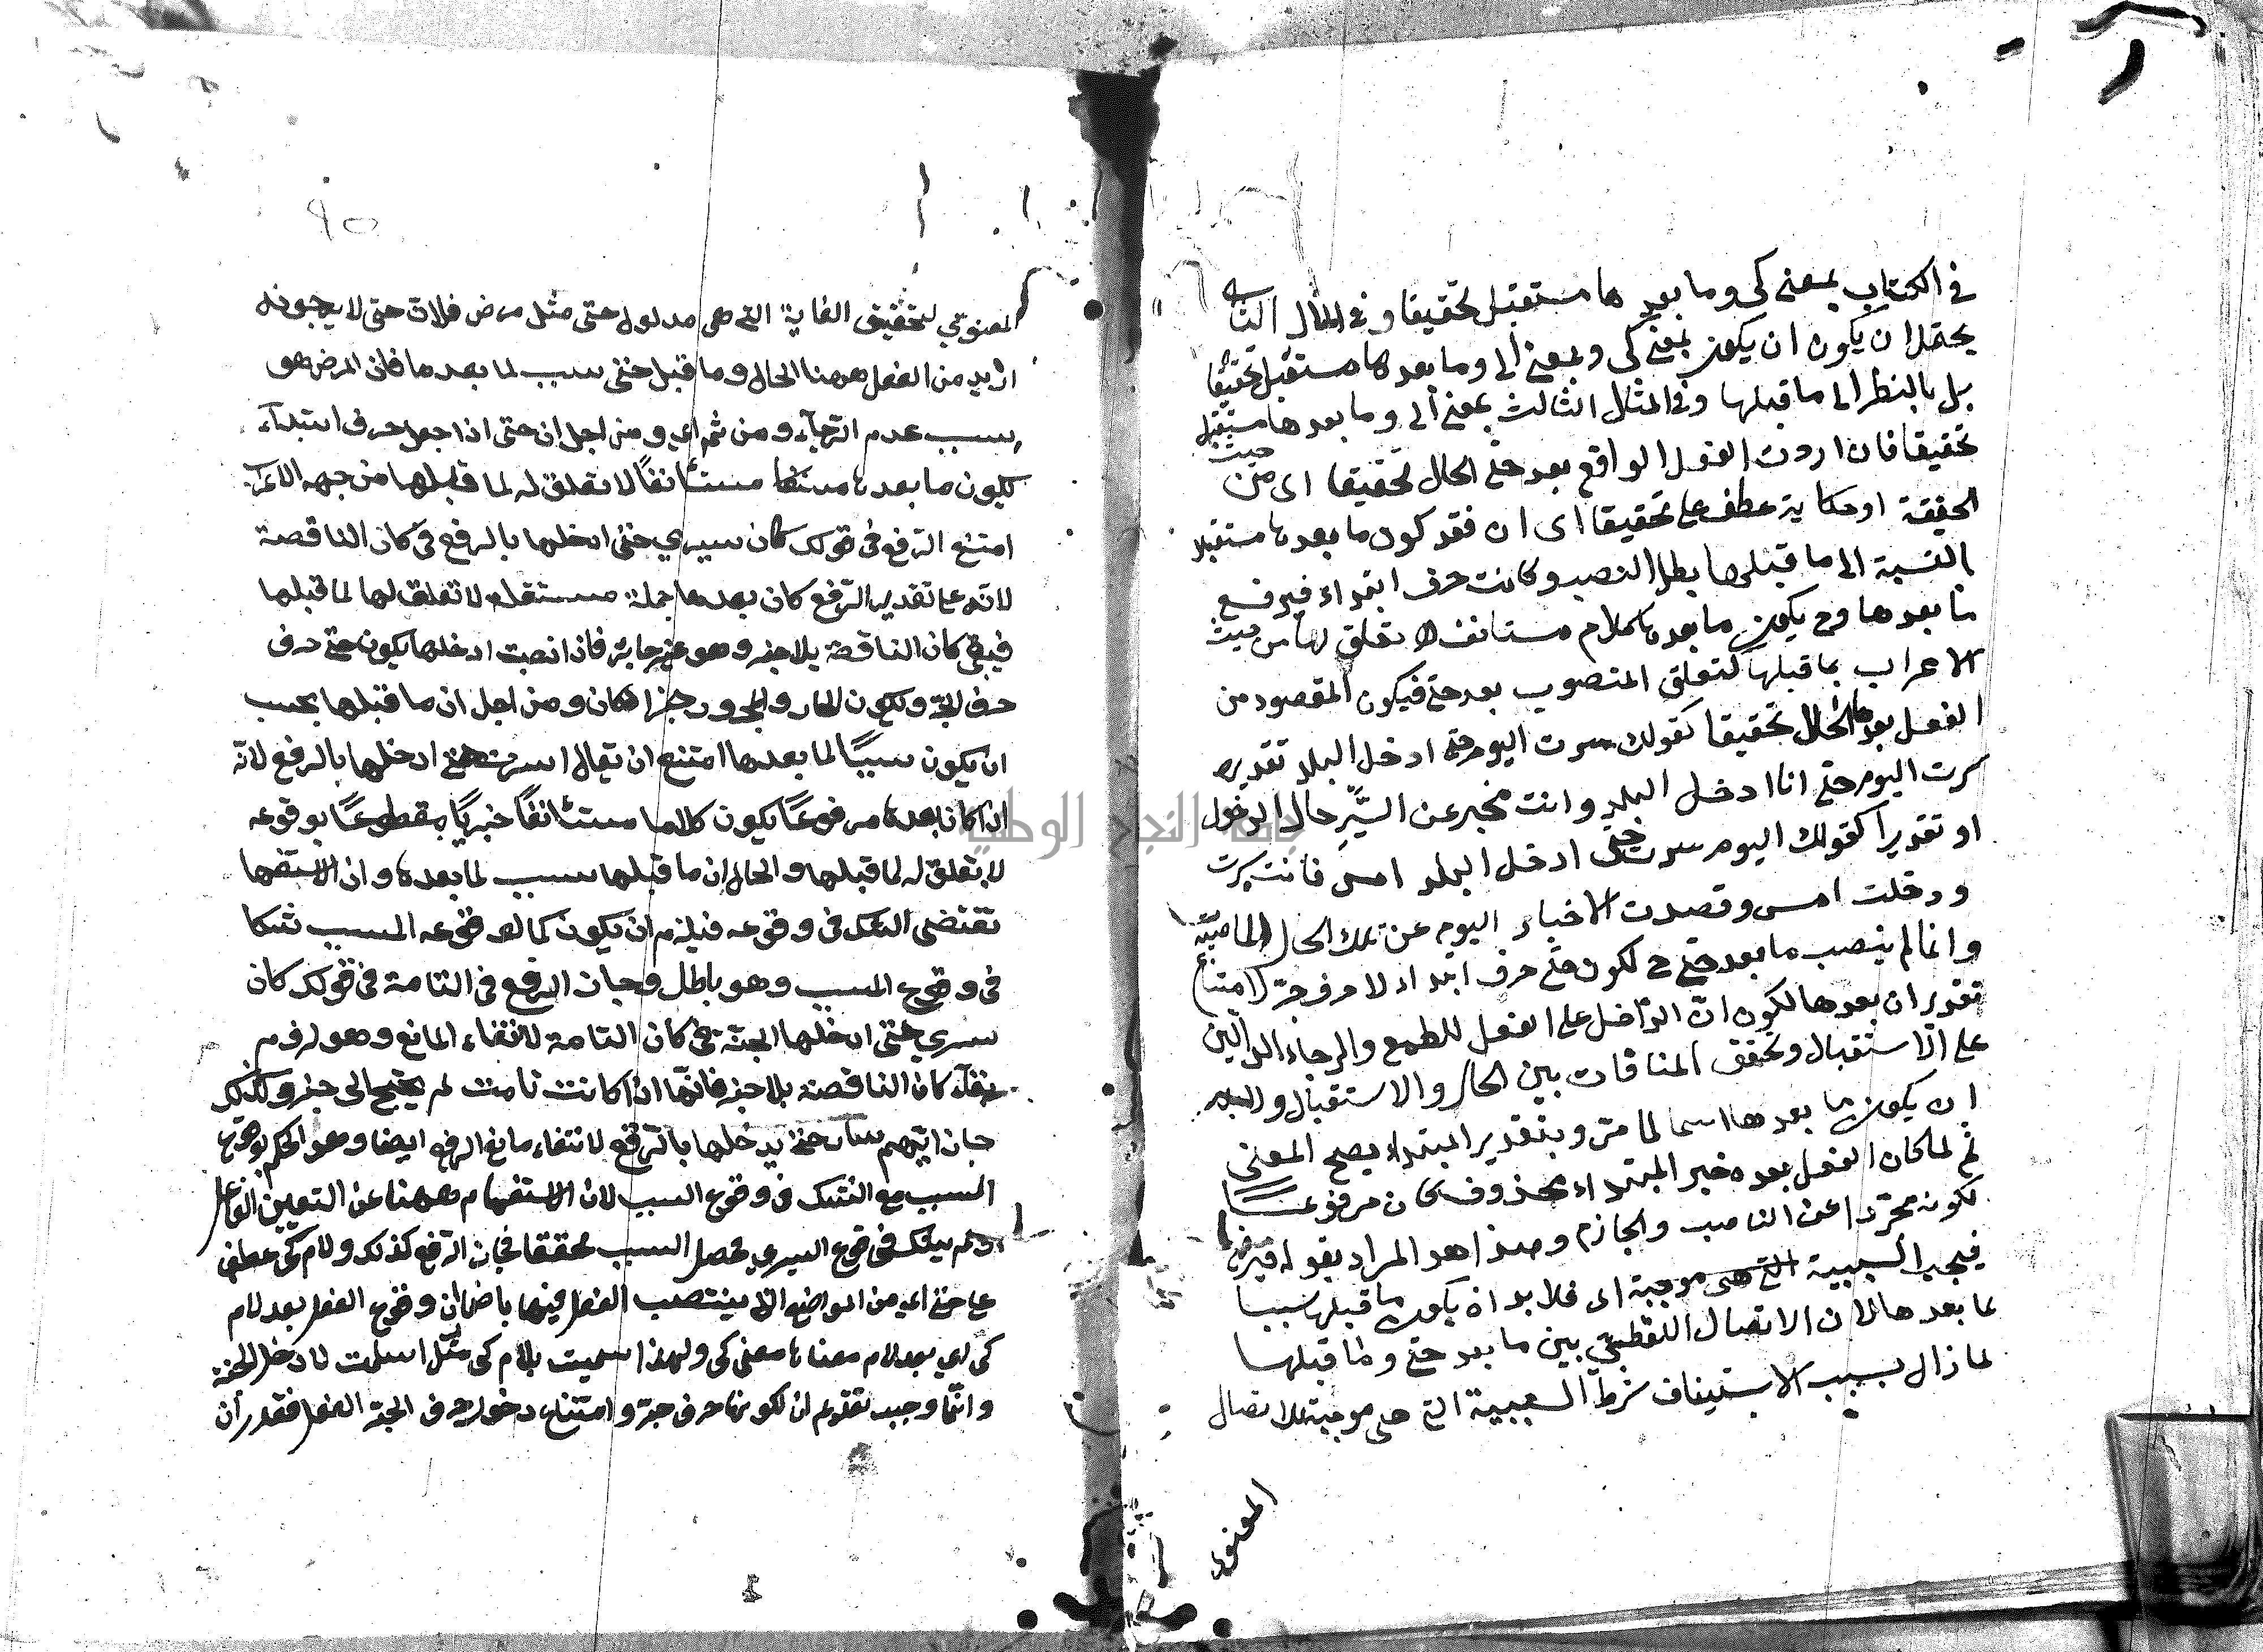 في الكتاب بمعنى كي وما بعدها مستقبل تحقيقا وفي المثال الثاني
يحتمل ان يكون ان يكون بمعنى كي وبمعنى الى وما بعدها مستقبل تحقيقا
بل بالنظر الى ما قبلها وفي المثال الثالث بمعنى الى وما بعدها مستقبل
تحقيقا فان اردت الفعل الواقع بعد حتى الحال تحقيقا اى من حيث
الحقيقة او حكاية عطف على تحقيقا اى ان فقد كون ما بعدها مستقبلا
بالنسبة الى ما قبلها بطل النصب وكانت حرف ابتداء فيرفع
ما بعدها وح يكون ما بعدها كلام مستانف لا تعلق لها من حيث
الاعراب بما قبلها كتعلق المنصوب بعد حتى فيكون المقصود من
الفعل بعدها الحال تحقيقا كقولك سرت اليوم حتى ادخل البلد تقديره
سرت اليوم حتى انا ادخل البلد وانت مخبر عن السَّيرِ حال الدخول
او تقديرا كقولك اليوم سرت حتى ادخل البلد امس فانت سرت
ودخلت امس وقصدت الاخبار اليوم عن تلك الحال الماضية
وانما لم ينصب ما بعد حتى ح لكون حتى حرف ابتداء لا حرف جرّ لامتناع
تقدير ان بعدها لكون ان الداخل على الفعل للطمع والرجاء الدالين
على الاستقبال وتحقق المنافات بين الحال والاستقبال
ان يكون ما بعدها اسما لما مرّ وبتقدير المبتداء يصح المعنى
ثم لما كان الفعل بعده خبر المبتداء محذوف كان مرفوعا
لكونه مجرّدا عن الناصب والجازم وهذا هو المراد بقوله فيرفع
فيجب السببية التى هى موجبة اى فلا بد ان يكون ما قبلها سببا
لما بعدها لان الاتصال اللفظي بين ما بعد حتى وما قبلها
لما زال بسبب الاستيناف شرط السببية التى هى موجبة للاتصال
المعنوى
المعنوي لتحقيق الغاية التى هى مدلول حتى مثل مرض فلان حتى لا يرجونه
اريد من الفعل ههنا الحال وما قبل حتى سبب لما بعدها فان المرض هو
سبب عدم الرجآء ومن ثم اي ومن اجل ان حتى اذا جعل حرف ابتدآء
يكون ما بعدها مستأنفاً لا تعلق له لما قبلها من جهة الاعراب
امتنع الرّفع في قولك كان سيري حتى ادخلها بالرفع في كان الناقصة
لانه على تقدير الرّفع كان بعدها جملة مستقلة لا تعلق لها لما قبلها
فبقي كان الناقصة بلا خبر وهو غير جايز فاذا نصبت ادخلها يكون حتى حرف
حرف الجرّ ويكون الجار والمجرور خبرا لكان ومن اجل ان ما قبلها يجب
ان يكون سبباً لما بعدها امتنع ان يقال اسرت حتى ادخلها بالرفع لانه
اذا كان ما بعدها مرفوعاً يكون كلاما مستأنفاً خبرياً مقطوعاً بوقوعه
لا تعلق له لما قبلها والحال ان ما قبلها سبب لما بعدها وان الاستفها
تقتضى الشك في وقوعه فيلزم ان يكون وقوعه المسبب شكا
في وقوع السبب وهو باطل وجاز الرفع في التامة في قولك كان
سيري حتى ادخلها الجنة في كان التامة لانتفاء المانع وهو لزوم
بقآء كان الناقصة بلا خبر فانّها اذا كانت تامت لم يحتج الى خبر وكذلك
جاز ايّهم سار حتى يدخلها بالرّفع لانتفاء مانع الرفع ايضا وهو الحكم بوقوع
المسبب مع الشك في وقوع السبب لان الاستفهام ههنا عن التعيين الفاعل
ولم يشك في وقوع السيري فحصل السبب محققا فجاز الرّفع كذلك ولام كي عطف
على حتى اي من المواضع التى ينتصب الفعل فيها باضمار ان وقوع الفعل بعد لام
كى اي بعد لام معناها معنى كي ولهذا سميت بلام كي مثل اسلمت لادخل الجنة
وانّما وجب تقديم ان لكونها حرف جرّ وامتناع دخول حرف الجرّ الفعل فقدر أن